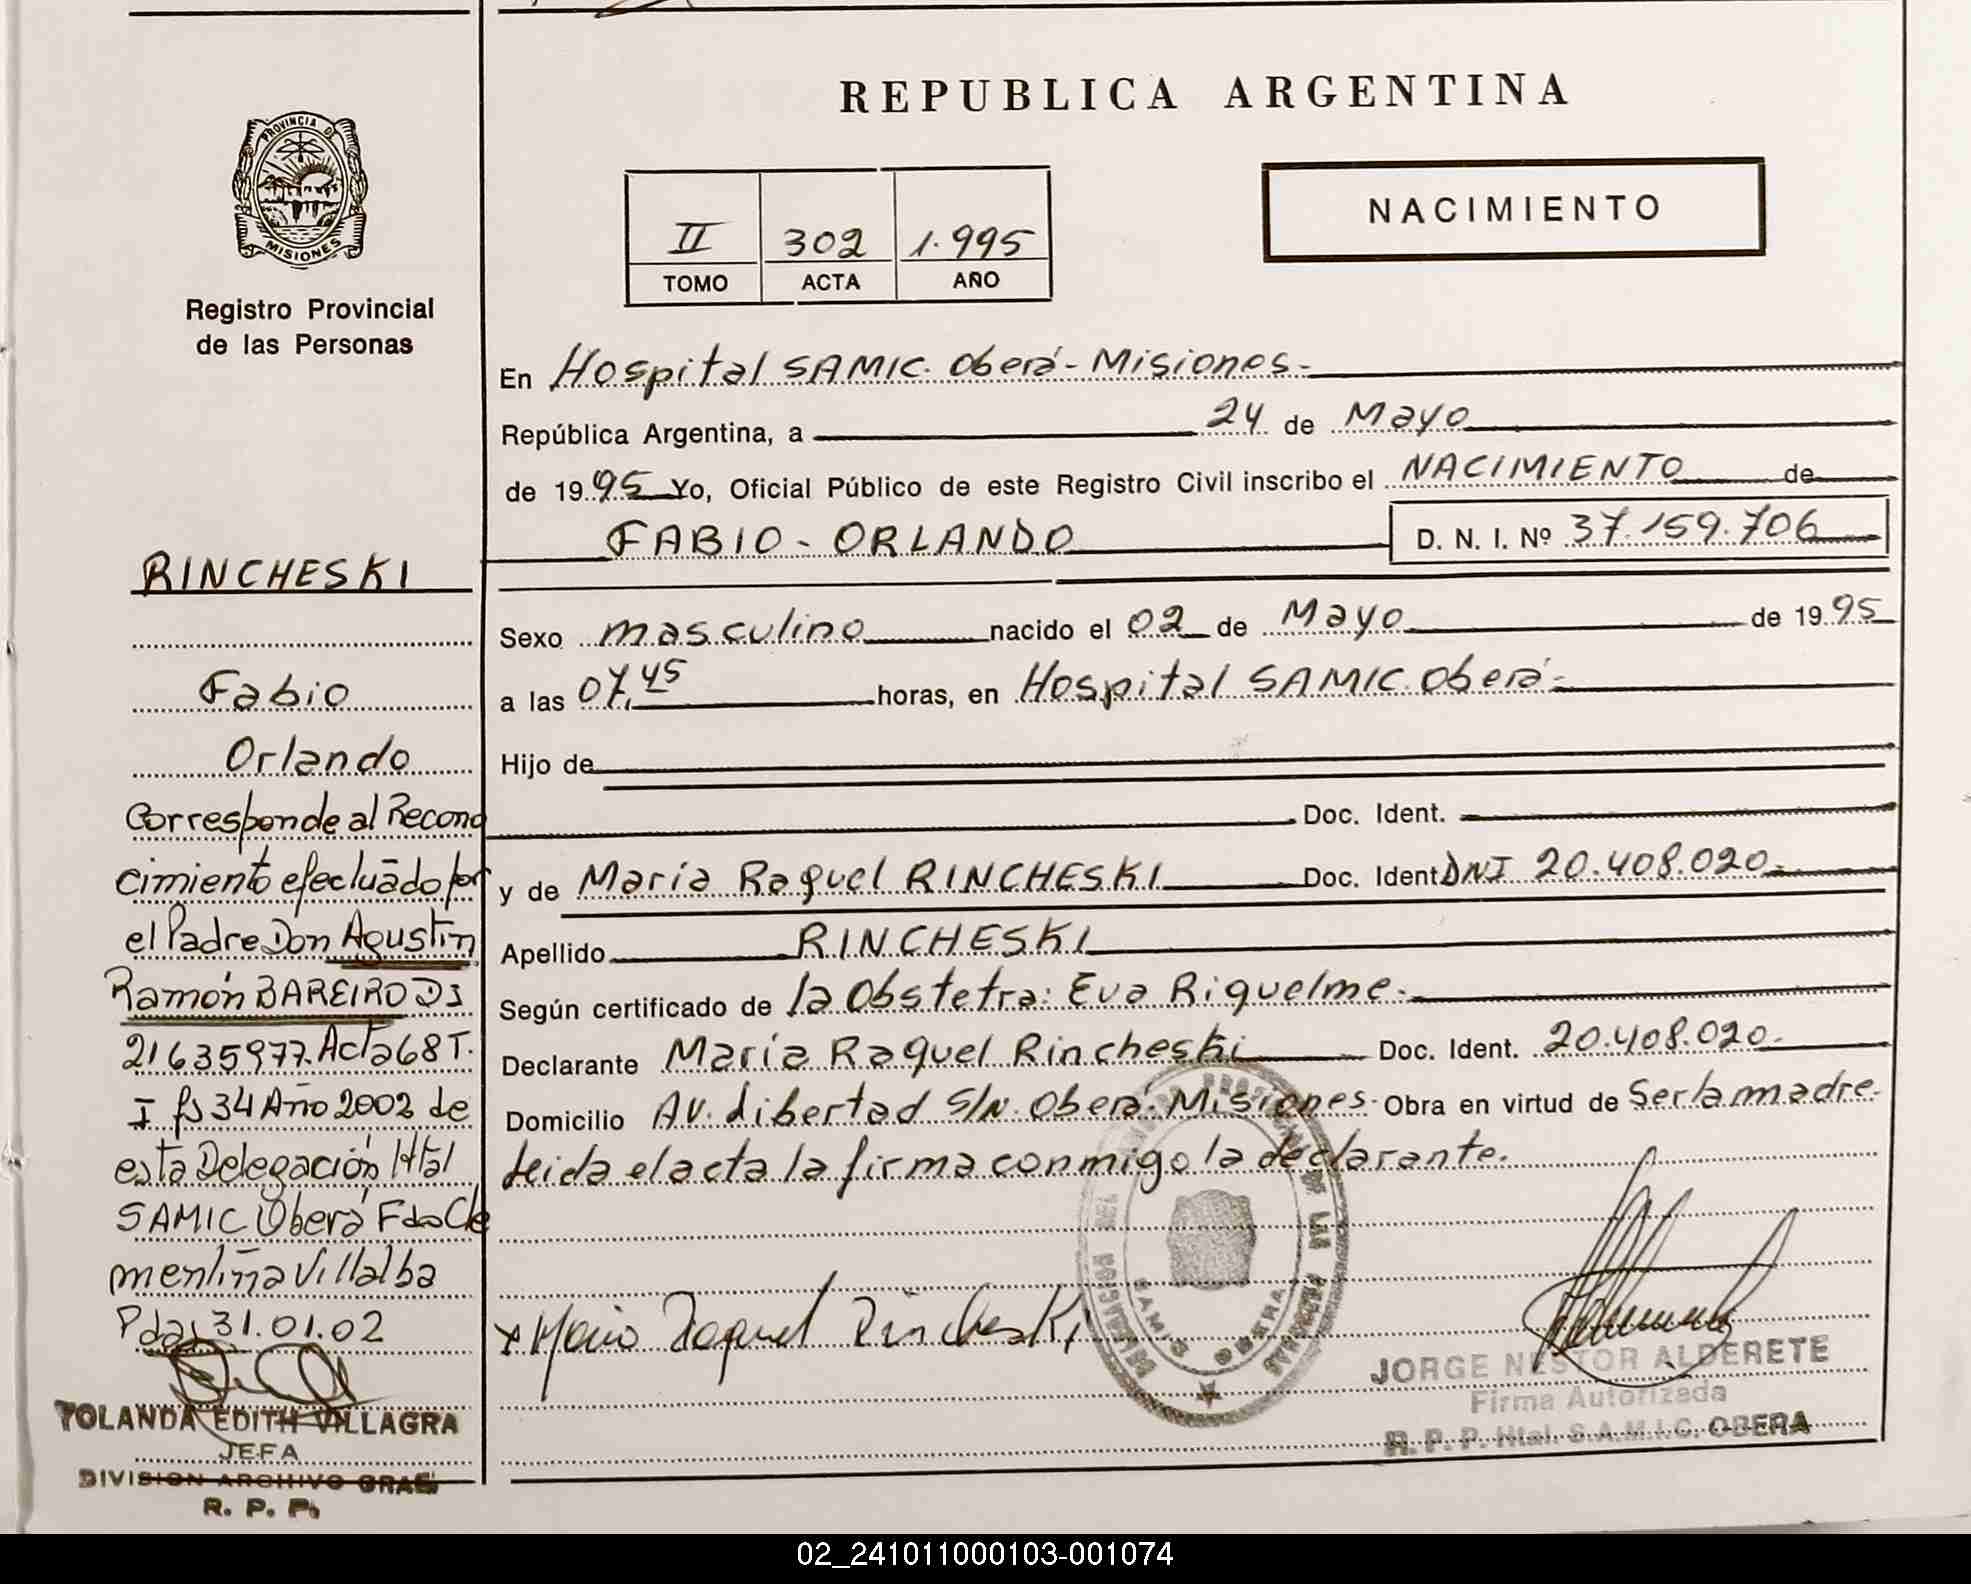 REPUBLICA ARGENTINA
PROVINCIA DE
MISIONES
Registro Provincial
de las Personas
II 302 1.995
TOMO ACTA AÑO
NACIMIENTO
En Hospital SAMIC. Oberá - Misiones.-
República Argentina, a 24 de Mayo
de 1995 Yo, Oficial Público de este Registro Civil inscribo el NACIMIENTO de
FABIO - ORLANDO
D. N. I. Nº 37.159.706
Sexo masculino nacido el 02 de Mayo de 1995
a las 07,45 horas, en Hospital SAMIC. Oberá.-
Hijo de
Doc. Ident.
y de María Raquel RINCHESKI Doc. Ident DNI 20.408.020.-
Apellido RINCHESKI
Según certificado de la Obstetra: Eva Riquelme.-
Declarante María Raquel Rincheski Doc. Ident. 20.408.020.-
Domicilio Av. Libertad S/N. Oberá. Misiones- Obra en virtud de Ser la madre.-
Leida el acta la firma conmigo la declarante.
María Raquel Rincheski
SAMIC OBERA
JORGE NESTOR ALDERETE
Firma Autorizada
R. P. P. Htal. S.A.M.I.C. OBERA
RINCHESKI
Fabio
Orlando
Corresponde al Recono
cimiento efectuado por
el Padre Don Agustin
Ramón BAREIRO DI
21635977. Acta 68 T.
I fs 34 Año 2002 de
esta Delegación Htal
SAMIC Oberá Fdo Cle
mentina Villalba
Pdas 31.01.02
YOLANDA EDITH VILLAGRA
JEFA
DIVISION ARCHIVO GRAL
R. P. P.
02_241011000103-001074